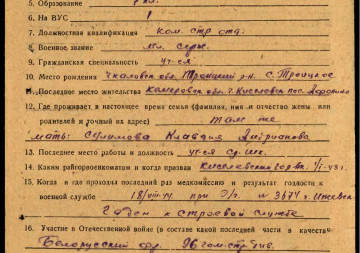 5. Образование 7 кл.
6. На ВУС 1
7. Должностная квалификация ком. стр. отд.
8. Военное звание мл. серж.
9. Гражданская специальность уч-ся
10. Место рождения Чкаловск. обл. Троицкий р-н. с. Троицкое
11. Последнее место жительства Кемеровск. обл. г. Киселевск пос.
12. Где проживает в настоящее время семья (фамилия, имя и отчество жены или
родителей и точный их адрес) там же
мать: Клавдия Андриановна
13. Последнее место работы и должность уч-ся ср. шк.
14. Каким райгорвоенкоматом и когда призван Киселевским горвк. I-43 г.
15. Когда и где проходил последний раз медкомиссию и результат годности к
военной службе 18/VIII-44 при Э/г № 3174 г. Ижевск
Годен к строевой службе
16. Участие в Отечественной войне (в составе какой последней части в качестве
Белорусский 96 гом. стр. див.